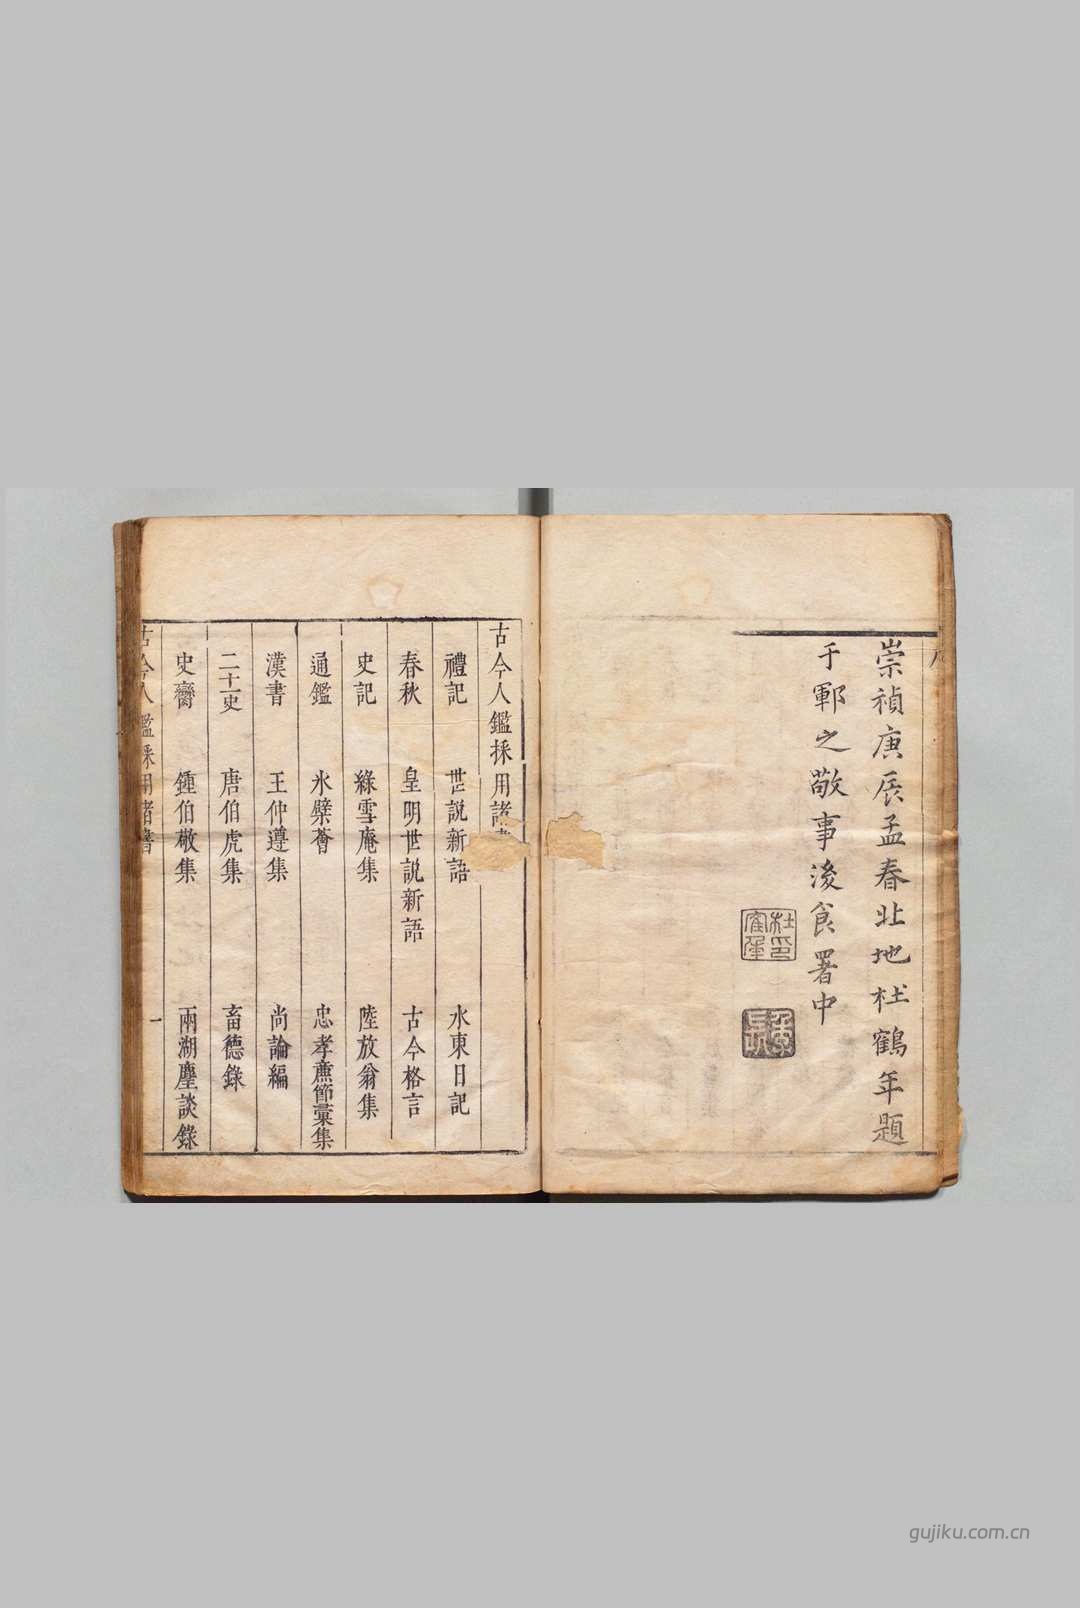 崇禎庚辰孟春北地杜鶴年題
于鄆之敬事後食署中
古今人鑑採用諸書
禮記 世説新語 水東日記
春秋 皇明世説新語 古今格言
史記 綠雪庵集 陸放翁集
通鑑 氷檗薈 忠孝廉節彙集
漢書 王仲遵集 尚論編
二十一史 唐伯虎集 畜德錄
史臠 鍾伯敬集 兩湖麈談錄
古今人鑑採用諸書 一
gujiku.com.cn